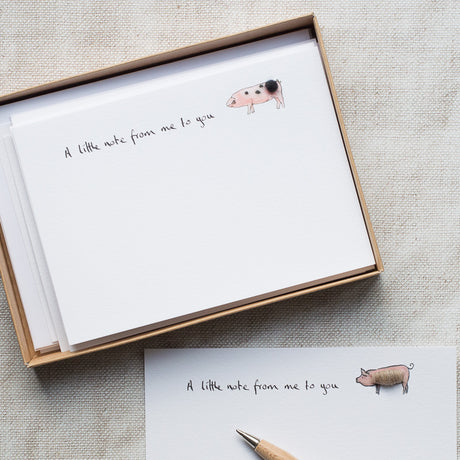 A little note from me to you
A little note from me to you